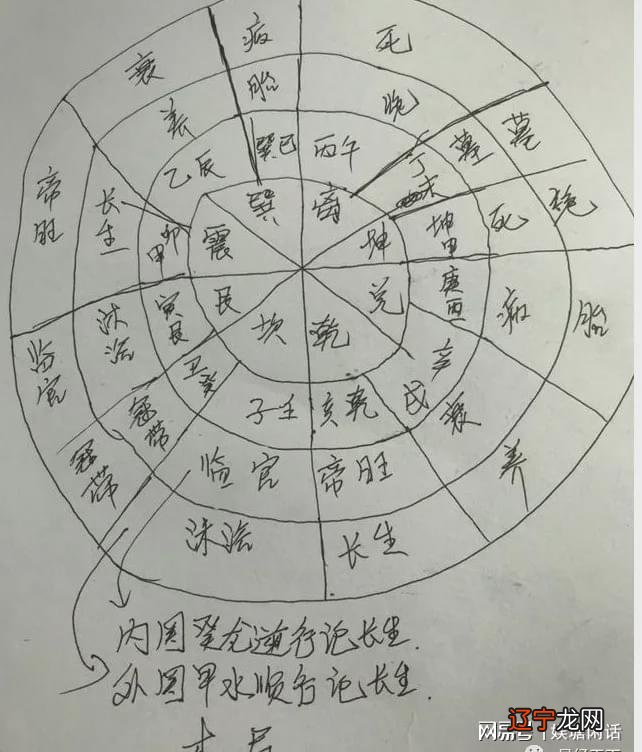 病
死
衰
胎
绝
养
墓
墓
乙辰
巽巳
丙午
丁
未
帝
旺
长
生
卯
甲
震
巽
离
坤
坤申
死
绝
临
官
沐
浴
寅
艮
艮
坎
乾
兑
庚酉
病
胎
冠
带
冠
带
丑
癸
子壬
亥乾
辛
戌
衰
养
临官
帝旺
沐浴
长生
内圈癸龙逆行记长生.
外圈甲水顺行记长生.
木局
搜狐号@娱塘闲话
辽宁龙网